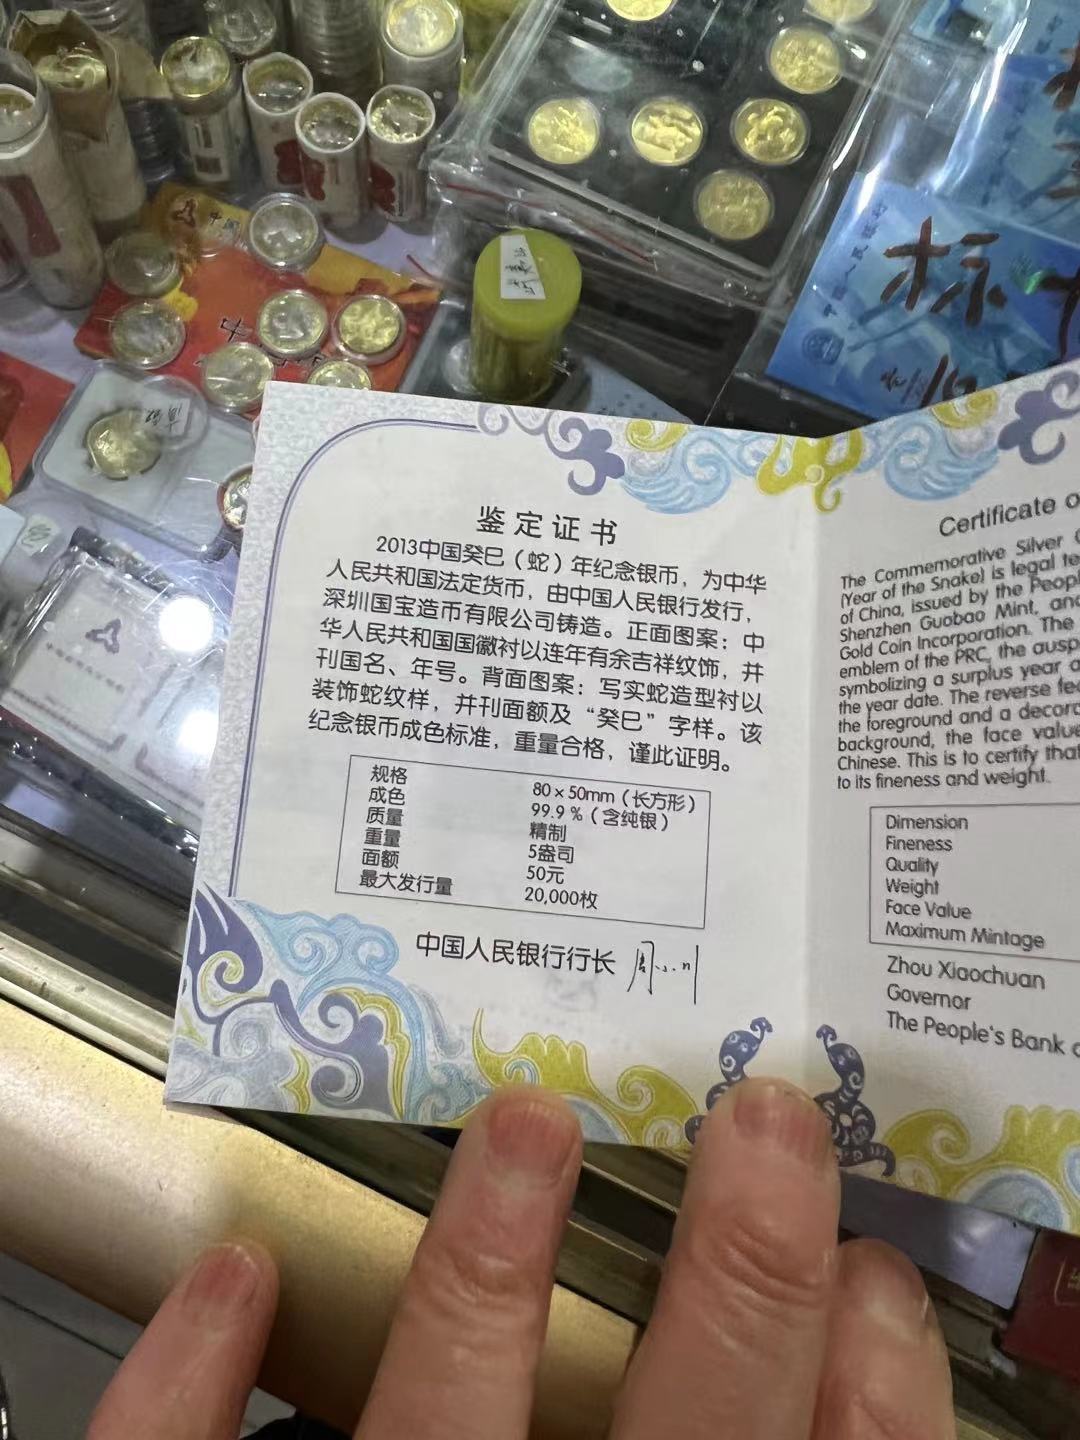 中国
标
中国人民银行
鉴定证书
2013中国癸巳（蛇）年纪念银币，为中华
人民共和国法定货币，由中国人民银行发行，
深圳国宝造币有限公司铸造。正面图案：中
华人民共和国国徽衬以连年有余吉祥纹饰，并
刊国名、年号。背面图案：写实蛇造型衬以
装饰蛇纹样，并刊面额及“癸巳”字样。该
纪念银币成色标准，重量合格，谨此证明。
规格 80×50mm（长方形）
成色 99.9％（含纯银）
质量 精制
重量 5盎司
面额 50元
最大发行量 20,000枚
中国人民银行行长 周小川
Certificate o
The Commemorative Silver C
(Year of the Snake) is legal te
of China, issued by the Peopl
Shenzhen Guobao Mint, and
Gold Coin Incorporation. The
emblem of the PRC, the ausp
symbolizing a surplus year a
the year date. The reverse fea
the foreground and a decora
background, the face value
Chinese. This is to certify that
to its fineness and weight.
Dimension
Fineness
Quality
Weight
Face Value
Maximum Mintage
Zhou Xiaochuan
Governor
The People's Bank o